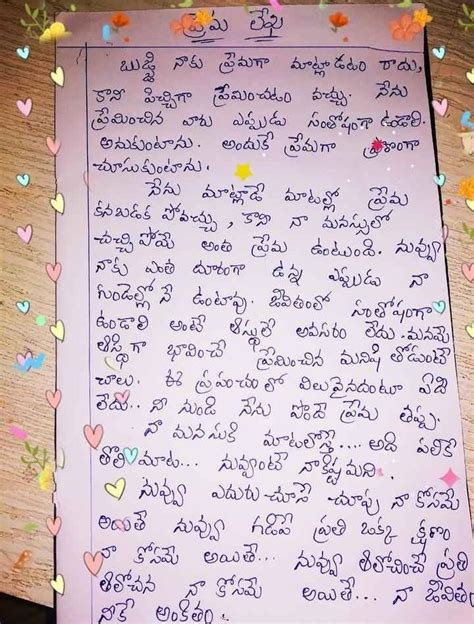 ప్రేమ లేఖ
బుజ్జి నాకు ప్రేమగా మాట్లాడటం రాదు,
కాని పిచ్చిగా ప్రేమించటం వచ్చు. నేను
ప్రేమించిన వారు ఎప్పుడు సంతోషంగా ఉండాలి
అనుకుంటాను. అందుకే ప్రేమగా ప్రాణంగా
చూసుకుంటాను.
నేను మాట్లాడే మాటల్లో ప్రేమ
కనబడక పోవచ్చు, కాని నా మనస్సులో
చచ్చి పోయే అంత ప్రేమ ఉంటుంది. నువ్వు
నాకు ఎంత దూరంగా ఉన్న ఎప్పుడు నా
గుండెల్లో నే ఉంటావు. జీవితంలో సంతోషంగా
ఉండాలి అంటే ఆస్థులే అవసరం లేదు. మనమే
ఆస్థి గా భావించే ప్రేమించిన మనిషి తోడుంటే
చాలు. ఈ ప్రపంచం లో విలువైనదంటూ ఏది
లేదు.. నీ నుండి నేను పొందే ప్రేమ తప్ప.
నా మనసుకి మాటలొస్తే.... అది పలికే
తొలి మాట... నువ్వంటే నాకిష్టమని.
నువ్వు ఎదురు-చూసే చూపు నా కోసమే
అయితే నువ్వు గడిపే ప్రతి ఒక్క క్షణం
నా కోసమే అయితే... నువ్వు ఆలోచించే ప్రతి
ఆలోచన నా కోసమే అయితే... నా జీవితం
నీకే అంకితం.